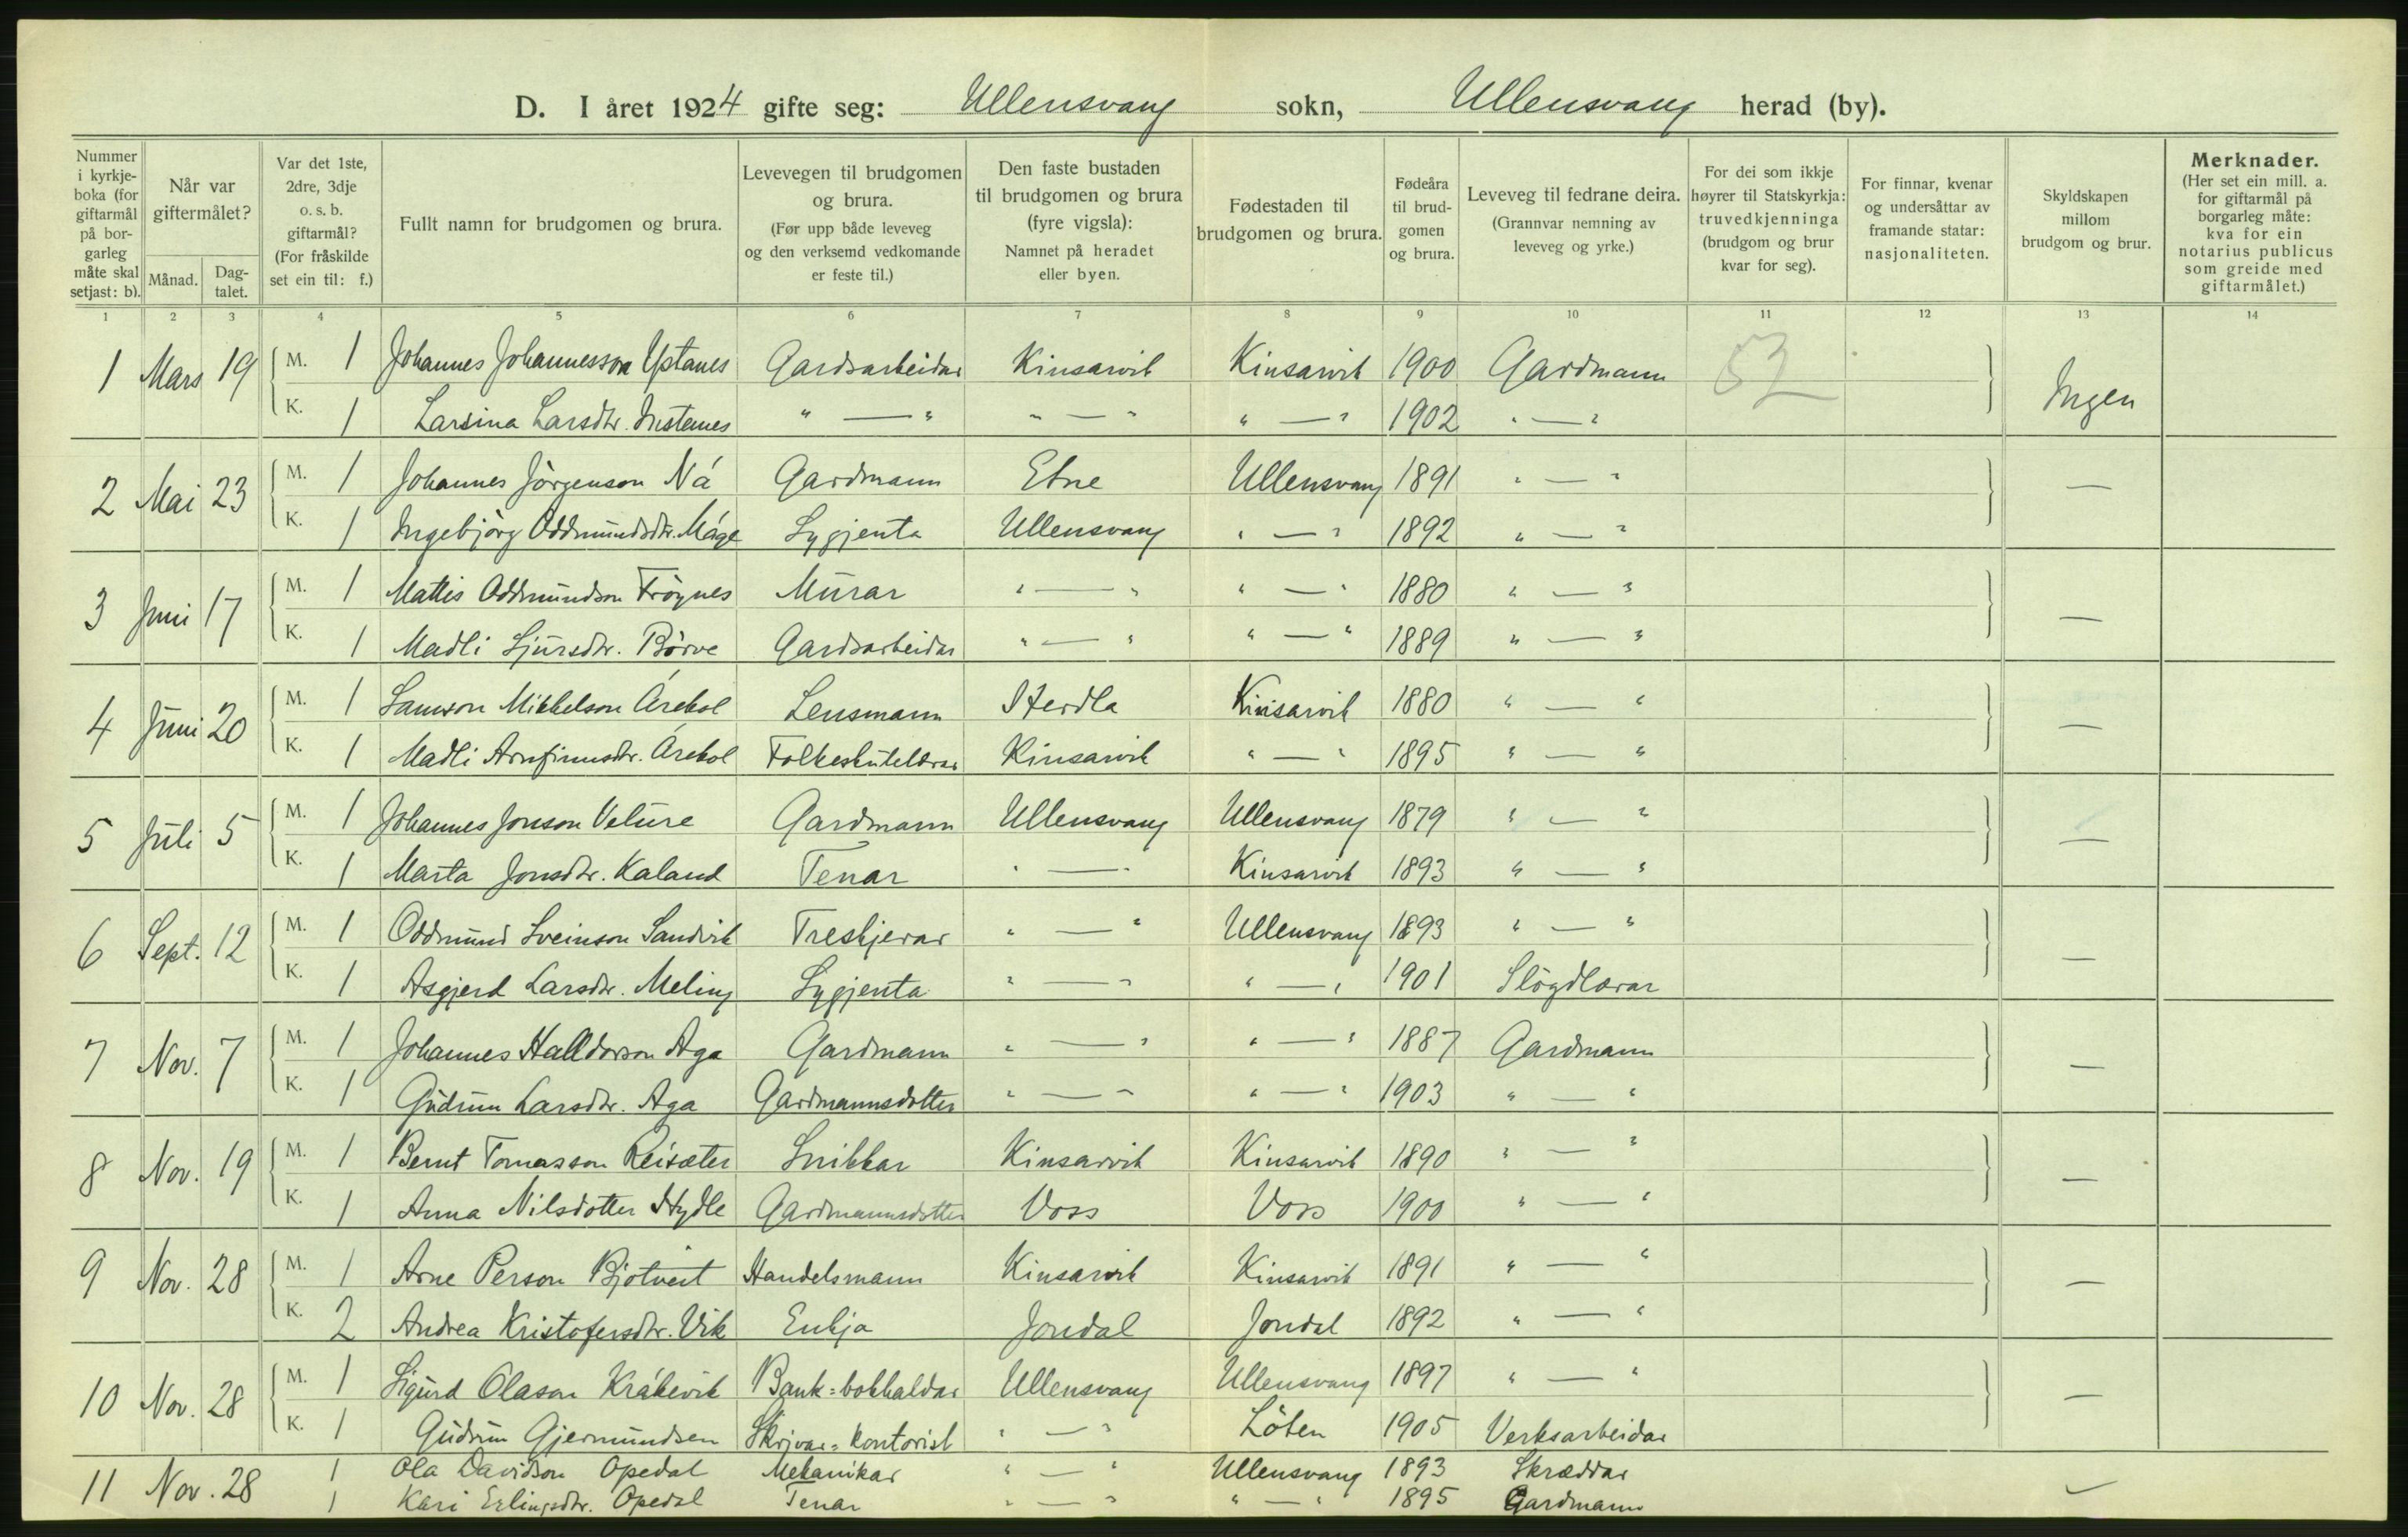 D. I året 1924 gifte seg: Ullensvang sokn, Ullensvang herad (by).
Nummer i kyrkje-boka (for giftarmål på bor-garleg måte skal setjast: b).
Når var giftermålet?
Månad.
Dag-talet.
Var det 1ste, 2dre, 3dje o. s. b. giftarmål? (For fråskilde set ein til: f.)
Fullt namn for brudgomen og brura.
Levevegen til brudgomen og brura. (Før upp både leveveg og den verksemd vedkomande er feste til.)
Den faste bustaden til brudgomen og brura (fyre vigsla): Namnet på heradet eller byen.
Fødestaden til brudgomen og brura.
Fødeåra til brud-gomen og brura.
Leveveg til fedrane deira. (Grannvar nemning av leveveg og yrke.)
For dei som ikkje høyrer til Statskyrkja: truvedkjenninga (brudgom og brur kvar for seg).
For finnar, kvenar og undersåttar av framande statar: nasjonaliteten.
Skyldskapen millom brudgom og brur.
Merknader. (Her set ein mill. a. for giftarmål på borgarleg måte: kva for ein notarius publicus som greide med giftarmålet.)
1 2 3 4 5 6 7 8 9 10 11 12 13 14
1 Mars 19 M. 1 Johannes Johannesson Ystanes Gardsarbeidar Kinsarvik Kinsarvik 1900 Gardmann 52 Ingen
K. 1 Larsina Larsdtr. Instenes " — " " — " " — " 1902 " — "
2 Mai 23 M. 1 Johannes Jörgenson Ná Gardmann Etne Ullensvang 1891 " — " —
K. 1 Ingebjörg Oddmundsdtr. Máge Sygjenta Ullensvang " — " 1892 " — "
3 Juni 17 M. 1 Mattis Oddmundson Fröynes Murar " — " " — " 1880 " — " —
K. 1 Madli Sjursdtr. Börve Gardsarbeidar " — " " — " 1889 " — "
4 Juni 20 M. 1 Samson Mikkelson Árekol Lensmann Herdla Kinsarvik 1880 " — " —
K. 1 Madli Arnfinnsdtr. Árekol Folkeskulelærar Kinsarvik " — " 1895 " — "
5 Juli 5 M. 1 Johannes Jonson Velure Gardmann Ullensvang Ullensvang 1879 " — " —
K. 1 Marta Jonsdtr. Kaland Tenar " — " Kinsarvik 1893 " — "
6 Sept. 12 M. 1 Oddmund Sveinson Sandvik Treskjerar " — " Ullensvang 1893 " — " —
K. 1 Asgjerd Larsdtr. Meling Sygjenta " — " " — " 1901 Slögdlærar
7 Nov. 7 M. 1 Johannes Halldorson Aga Gardmann " — " " — " 1887 Gardmann —
K. 1 Gudrun Larsdtr. Aga Gardmannsdotter " — " " — " 1903 " — "
8 Nov. 19 M. 1 Bernt Tomasson Reisæter Snikkar Kinsarvik Kinsarvik 1890 " — " —
K. 1 Anna Nilsdotter Hydle Gardmannsdotter Voss Voss 1900 " — "
9 Nov. 28 M. 1 Arne Person Bjotveit Handelsmann Kinsarvik Kinsarvik 1891 " — " —
K. 2 Andrea Kristofersdtr. Vik Enkja Jondal Jondal 1892 " — "
10 Nov. 28 M. 1 Sigurd Olason Krákevik Bank=bokhaldar Ullensvang Ullensvang 1897 " — " —
K. 1 Gudrun Gjermundsen Skrivar=kontorist " — " Löten 1905 Verksarbeidar
11 Nov. 28 1 Ola Davidson Opedal Mekanikar " — " Ullensvang 1893 Skræddar —
1 Kari Erlingsdtr. Opedal Tenar " — " " — " 1895 Gardmann